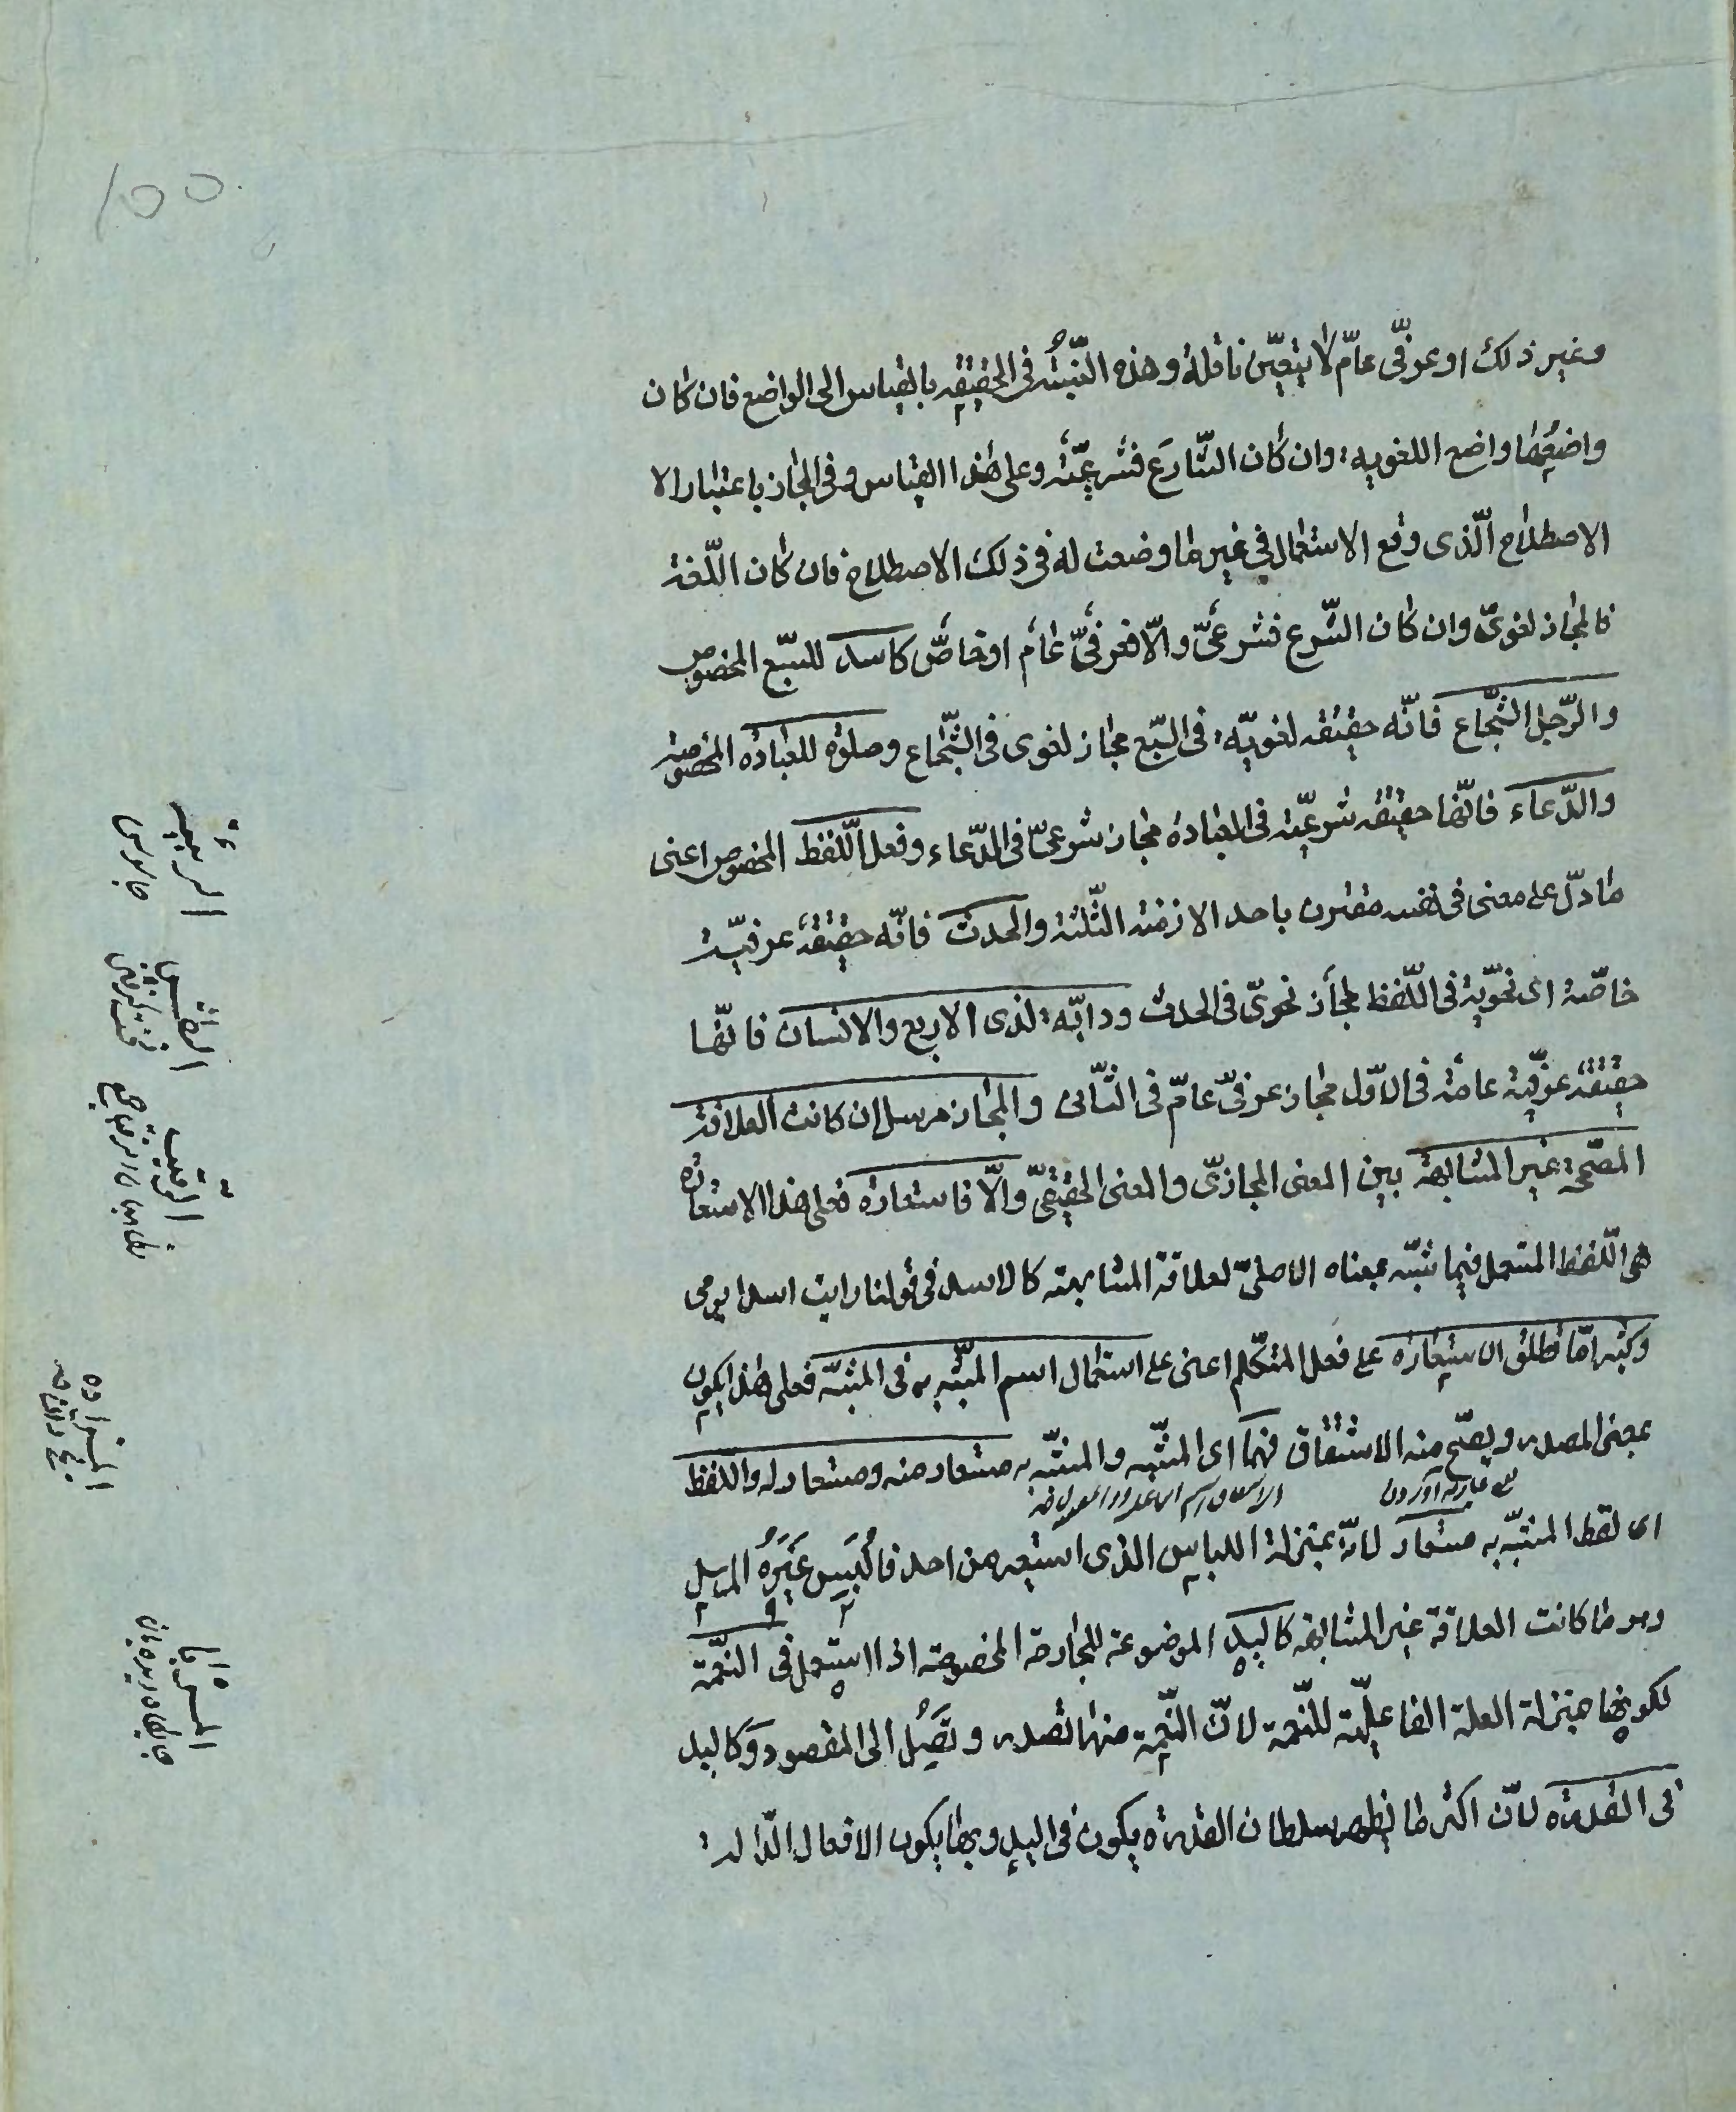 وغير ذلك او عرفّى عامّ لا يتعيّن ناقله وهذه النّسبة فى الحقيقه بالقياس الى الواضع فان كان
واضعها واضع اللغويه وان كان الشّارع فشرعيّة وعلى هذا القياس و فى المجاز باعتبار الا
الاصطلاح الّذى وقع الاستعمال فى غير ما وضعت له فى ذلك الاصطلاح فان كان اللّغة
فالمجاز لغوىّ وان كان الشّرع فشرعىّ والّا فعرفىّ عامّ او خاصّ كاسد للسّبع المخصوص
والرّجل الشّجاع فانّه حقيقه لغويّه فى السّبع مجاز لغوى فى الشّجاع وصلوة للعبادة المخصوصة
والدّعاء فانّها حقيقه شرعيّة فى العبادة مجاز شرعىّ فى الدّعاء وفعل اللّفظ المخصوص اعنى
ما دلّ على معنى فى نفسه مقترن باحد الازمنة الثّلثة والحدث فانّه حقيقة عرفيّة
خاصّة اى نحويّة فى اللّفظ مجاز نحوىّ فى الحدث ودابّه لذى الاربع والانسان فانّها
حقيقة عرفيّة عامّة فى الاوّل مجاز عرفىّ عامّ فى الثّانى والمجاز مرسل ان كانت العلاقة
المصحّحة غير المشابهة بين المعنى المجازىّ والمعنى الحقيقىّ والّا فاستعارة فعلى هذا الاستعارة
هى اللّفظ المستعمل فيما شبّه بمعناه الاصلىّ لعلاقة المشابهته كالاسد فى قولنا رايت اسدا يرمى
وكثيرامّا تطلق الاستعارة على فعل المتكلّم اعنى على استعمال اسم المشبّه به فى المشبّه فعلى هذا يكون
بمعنى المصدر ويصحّ منه الاشتقاق فهما اى المشبّه والمشبّه به مستعار منه ومستعار له واللّفظ
اى لفظ المشبّه به مستعار لانّه بمنزلة اللباس الذى استعير من احد فاُلبِسَ غَيرَهُ المرسل
وهو ما كانت العلاقة غير المشابهة كاليد الموضوعة للجارحة المخصوصة اذا استعمل فى النّعمة
لكونها بمنزلة العلة الفاعليّة للنّعمة لانّ النّعمة منها تصدر وتَصِلُ الى المقصود وَكاليد
فى القدرة لانّ اكثر ما يظهر سلطان القدرة يكون فى اليد وبها يكون الافعال الدّالة